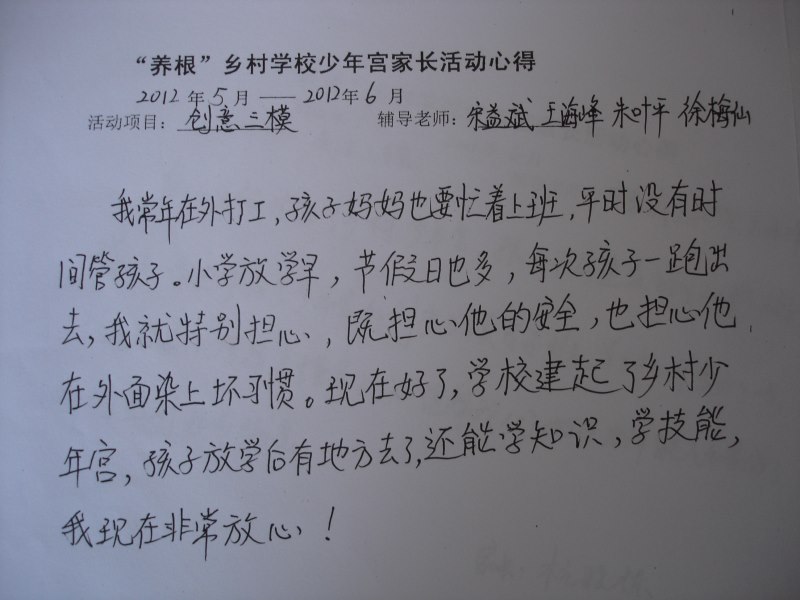 “养根”乡村学校少年宫家长活动心得
2012年5月——2012年6月
活动项目：创意三模 辅导老师：宋益斌 王海峰 朱叶平 徐梅仙
我常年在外打工，孩子妈妈也要忙着上班，平时没有时
间管孩子。小学放学早，节假日也多，每次孩子一跑出
去，我就特别担心，既担心他的安全，也担心他
在外面染上坏习惯。现在好了，学校建起了乡村少
年宫，孩子放学后有地方去了，还能学知识，学技能，
我现在非常放心！